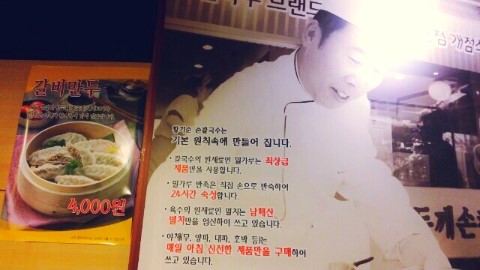 브랜드
개점
갈비만두
4,000원
손칼국수는
기본 원칙속에 만들어 집니다.
· 칼국수의 원재료인 밀가루는 최상급
제품만을 사용합니다.
· 밀가루 반죽은 직접 손으로 반죽하여
24시간 숙성합니다.
· 육수의 원재료인 멸치는 남해산
멸치만을 엄선하여 쓰고 있습니다.
· 야채(무, 양파, 대파, 호박 등)는
매일 아침 신선한 제품만을 구매하여
쓰고 있습니다.